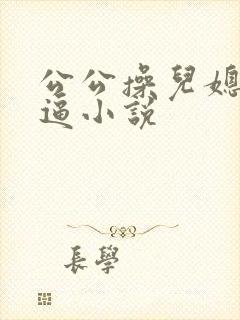 公公操兒媳
逼小說
長學